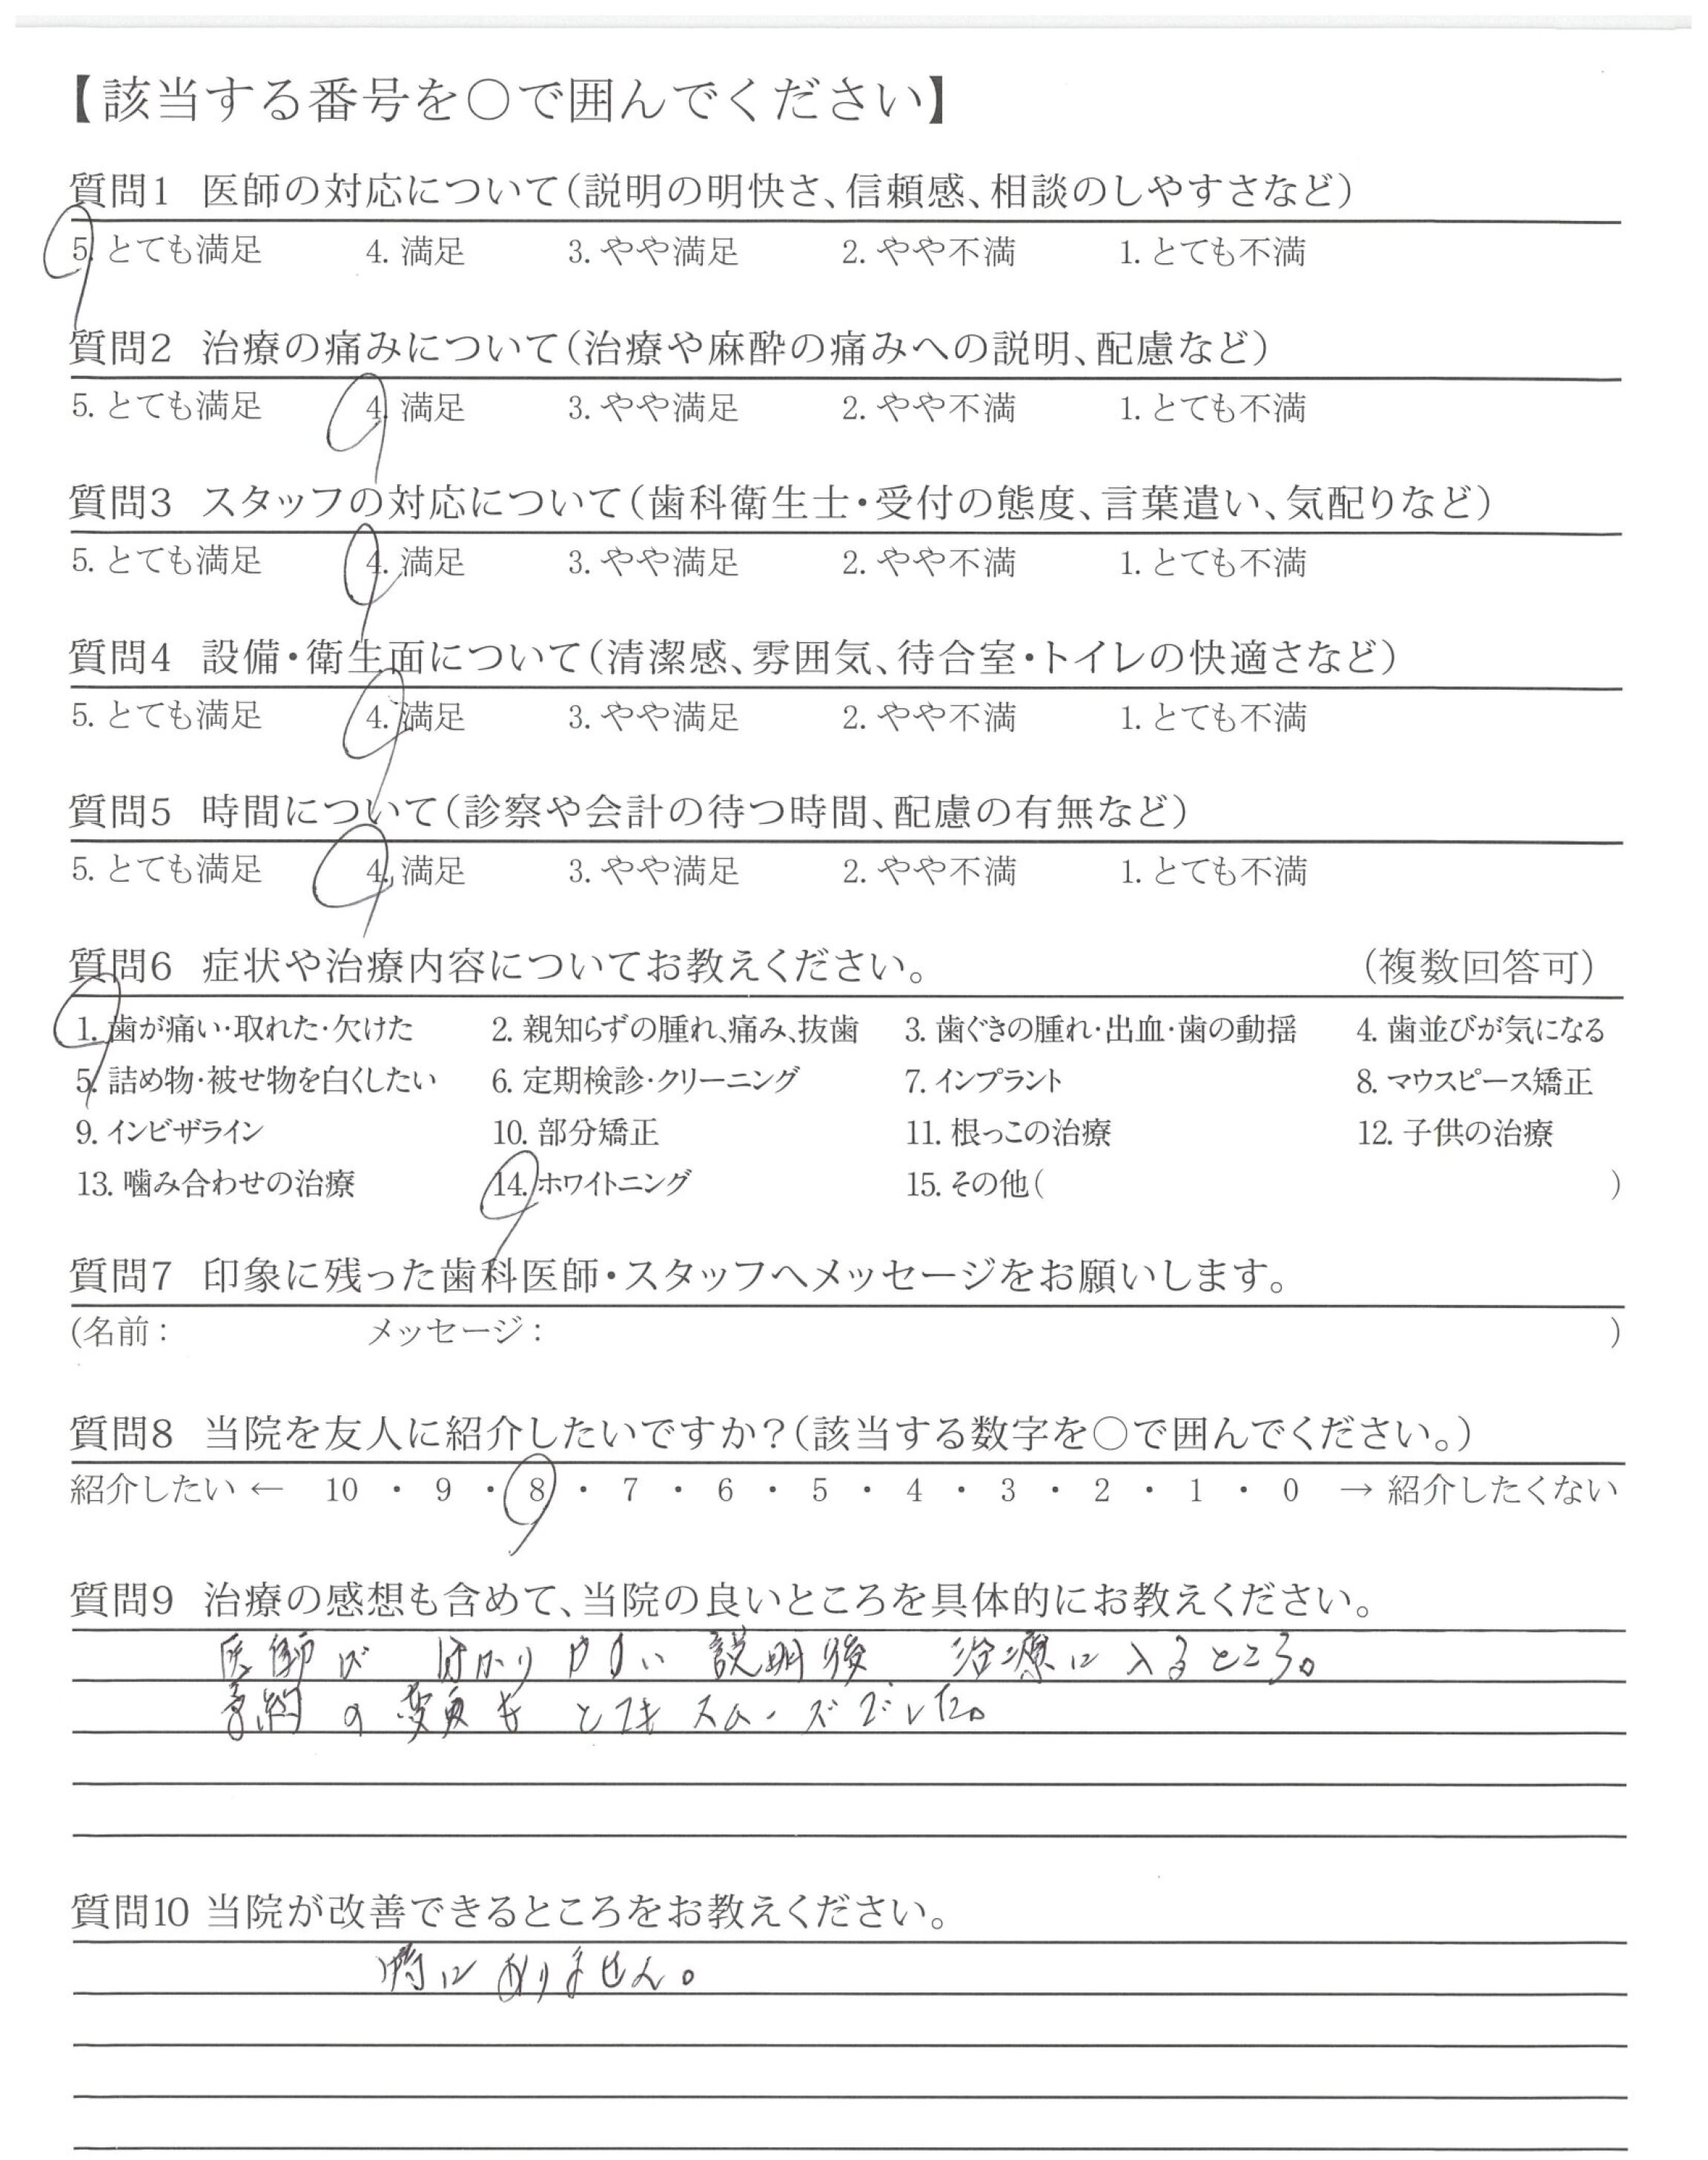 【該当する番号を○で囲んでください】
質問1 医師の対応について(説明の明快さ、信頼感、相談のしやすさなど)
5. とても満足 4. 満足 3. やや満足 2. やや不満 1. とても不満
質問2 治療の痛みについて(治療や麻酔の痛みへの説明、配慮など)
5. とても満足 4. 満足 3. やや満足 2. やや不満 1. とても不満
質問3 スタッフの対応について(歯科衛生士・受付の態度、言葉遣い、気配りなど)
5. とても満足 4. 満足 3. やや満足 2. やや不満 1. とても不満
質問4 設備・衛生面について(清潔感、雰囲気、待合室・トイレの快適さなど)
5. とても満足 4. 満足 3. やや満足 2. やや不満 1. とても不満
質問5 時間について(診察や会計の待つ時間、配慮の有無など)
5. とても満足 4. 満足 3. やや満足 2. やや不満 1. とても不満
質問6 症状や治療内容についてお教えください。 (複数回答可)
1. 歯が痛い・取れた・欠けた 2. 親知らずの腫れ、痛み、抜歯 3. 歯ぐきの腫れ・出血・歯の動揺 4. 歯並びが気になる
5. 詰め物・被せ物を白くしたい 6. 定期検診・クリーニング 7. インプラント 8. マウスピース矯正
9. インビザライン 10. 部分矯正 11. 根っこの治療 12. 子供の治療
13. 噛み合わせの治療 14. ホワイトニング 15. その他( )
質問7 印象に残った歯科医師・スタッフへメッセージをお願いします。
(名前： メッセージ： )
質問8 当院を友人に紹介したいですか?(該当する数字を○で囲んでください。)
紹介したい ← 10 ・ 9 ・ 8 ・ 7 ・ 6 ・ 5 ・ 4 ・ 3 ・ 2 ・ 1 ・ 0 → 紹介したくない
質問9 治療の感想も含めて、当院の良いところを具体的にお教えください。
医師が 分かりやすい 説明後 治療に入るところ。
予約の変更も とてもスムーズでした。
質問10 当院が改善できるところをお教えください。
特にありません。